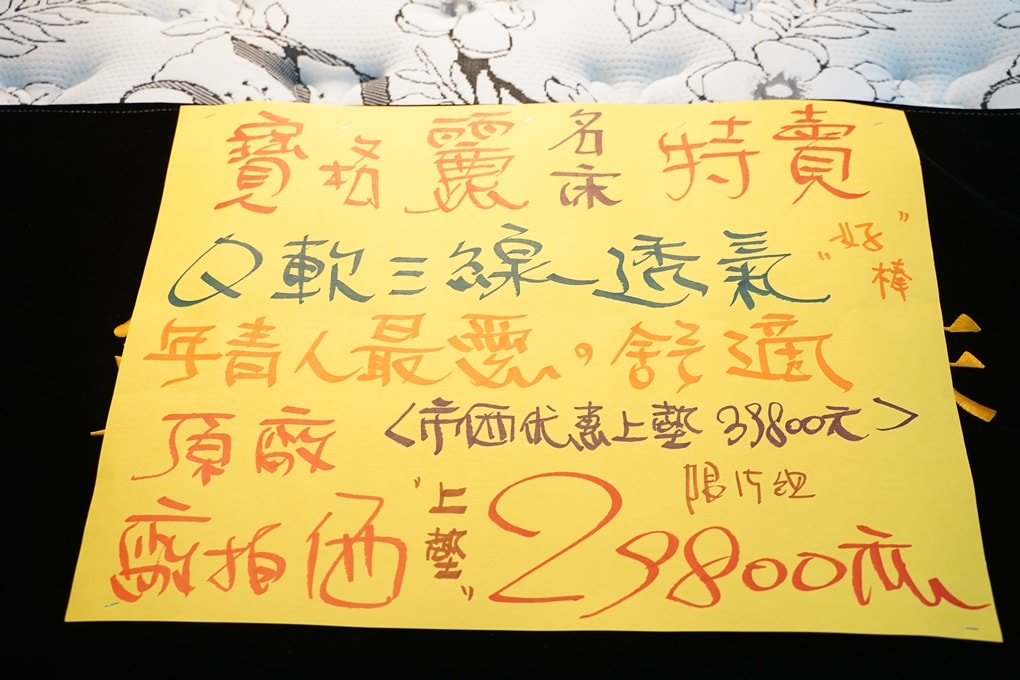 寶格麗名床特賣
Q軟三線透氣"好棒"
年青人最愛。舒適
原廠<市価优惠上墊39800元>
限15組
廠拍価"上墊"29800元